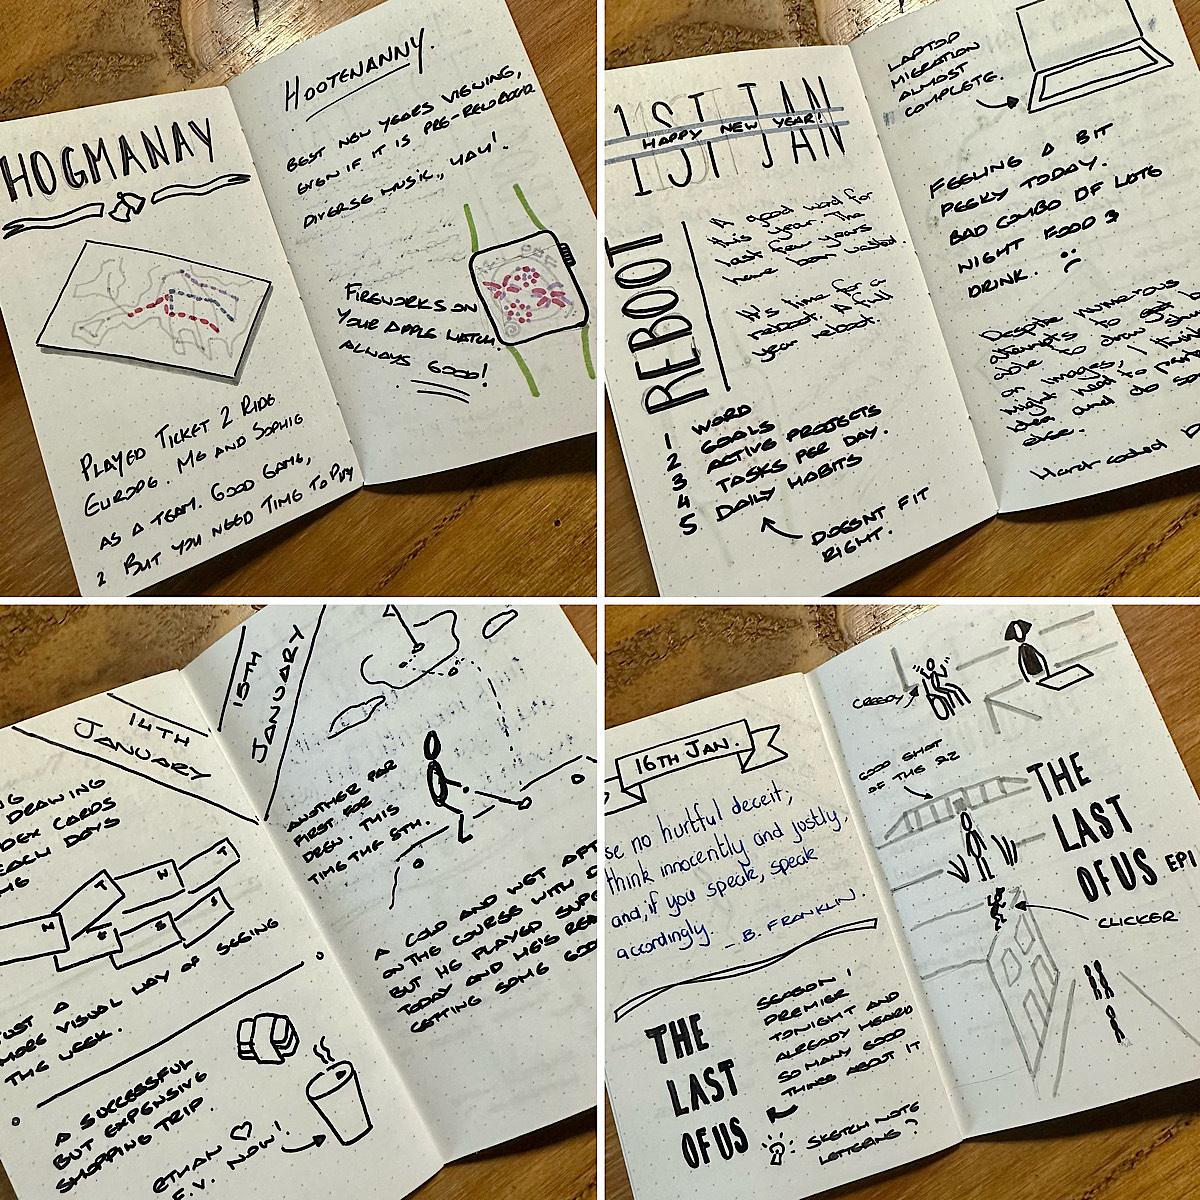 HOGMANAY
PLAYED TICKET 2 RIDE
EUROPE. ME AND SOPHIE
AS A TEAM. GOOD GAME,
BUT YOU NEED TIME TO PLAY
2
HOOTENANNY.
BEST NEW YEARS VIEWING,
EVEN IF IT IS PRE-RECORDED
DIVERSE MUSIC, YAY!
FIREWORKS ON
YOUR APPLE WATCH.
ALWAYS GOOD!
1ST JAN
HAPPY NEW YEAR!
REBOOT
A good word for
this year. The
last few years
have been wasted.
It's time for a
reboot. A full
year reboot.
1 WORD
2 GOALS
3 ACTIVE PROJECTS
4 TASKS PER DAY.
5 DAILY HABITS
DOESNT FIT
RIGHT.
LAPTOP
MIGRATION
ALMOST
COMPLETE.
FEELING A BIT
PEEKY TODAY.
BAD COMBO OF LATE
NIGHT FOOD &
DRINK.
Despite numerous
attempts to get
able to draw
on images, I think
might need to
idea and do
else.
Hard coded
14TH
JANUARY
DRAWING
CARDS
EACH DAYS
T
W
T
M
JUST A
MORE VISUAL WAY OF SEEING
THE WEEK.
A SUCCESSFUL
BUT EXPENSIVE
SHOPPING TRIP.
ETHAN ♡
F.V. NOW!
15TH
JANUARY
ANOTHER PAR
FIRST FOR
DREW. THIS
TIME THE 5TH.
A COLD AND WET
ON THE COURSE WITH
BUT HE PLAYED
TODAY AND HE'S
GETTING SOME
16TH JAN.
no hurtful deceit;
think innocently and justly,
and, if you speak, speak
accordingly.
- B. FRANKLIN.
THE
LAST
OF US
SEASON 1
PREMIER
TONIGHT AND
ALREADY HEARD
SO MANY GOOD
THINGS ABOUT IT
SKETCH NOTE
LETTERING?
CREEPY
GOOD SHOT
OF THE
THE
LAST
OF US EP1
CLICKER